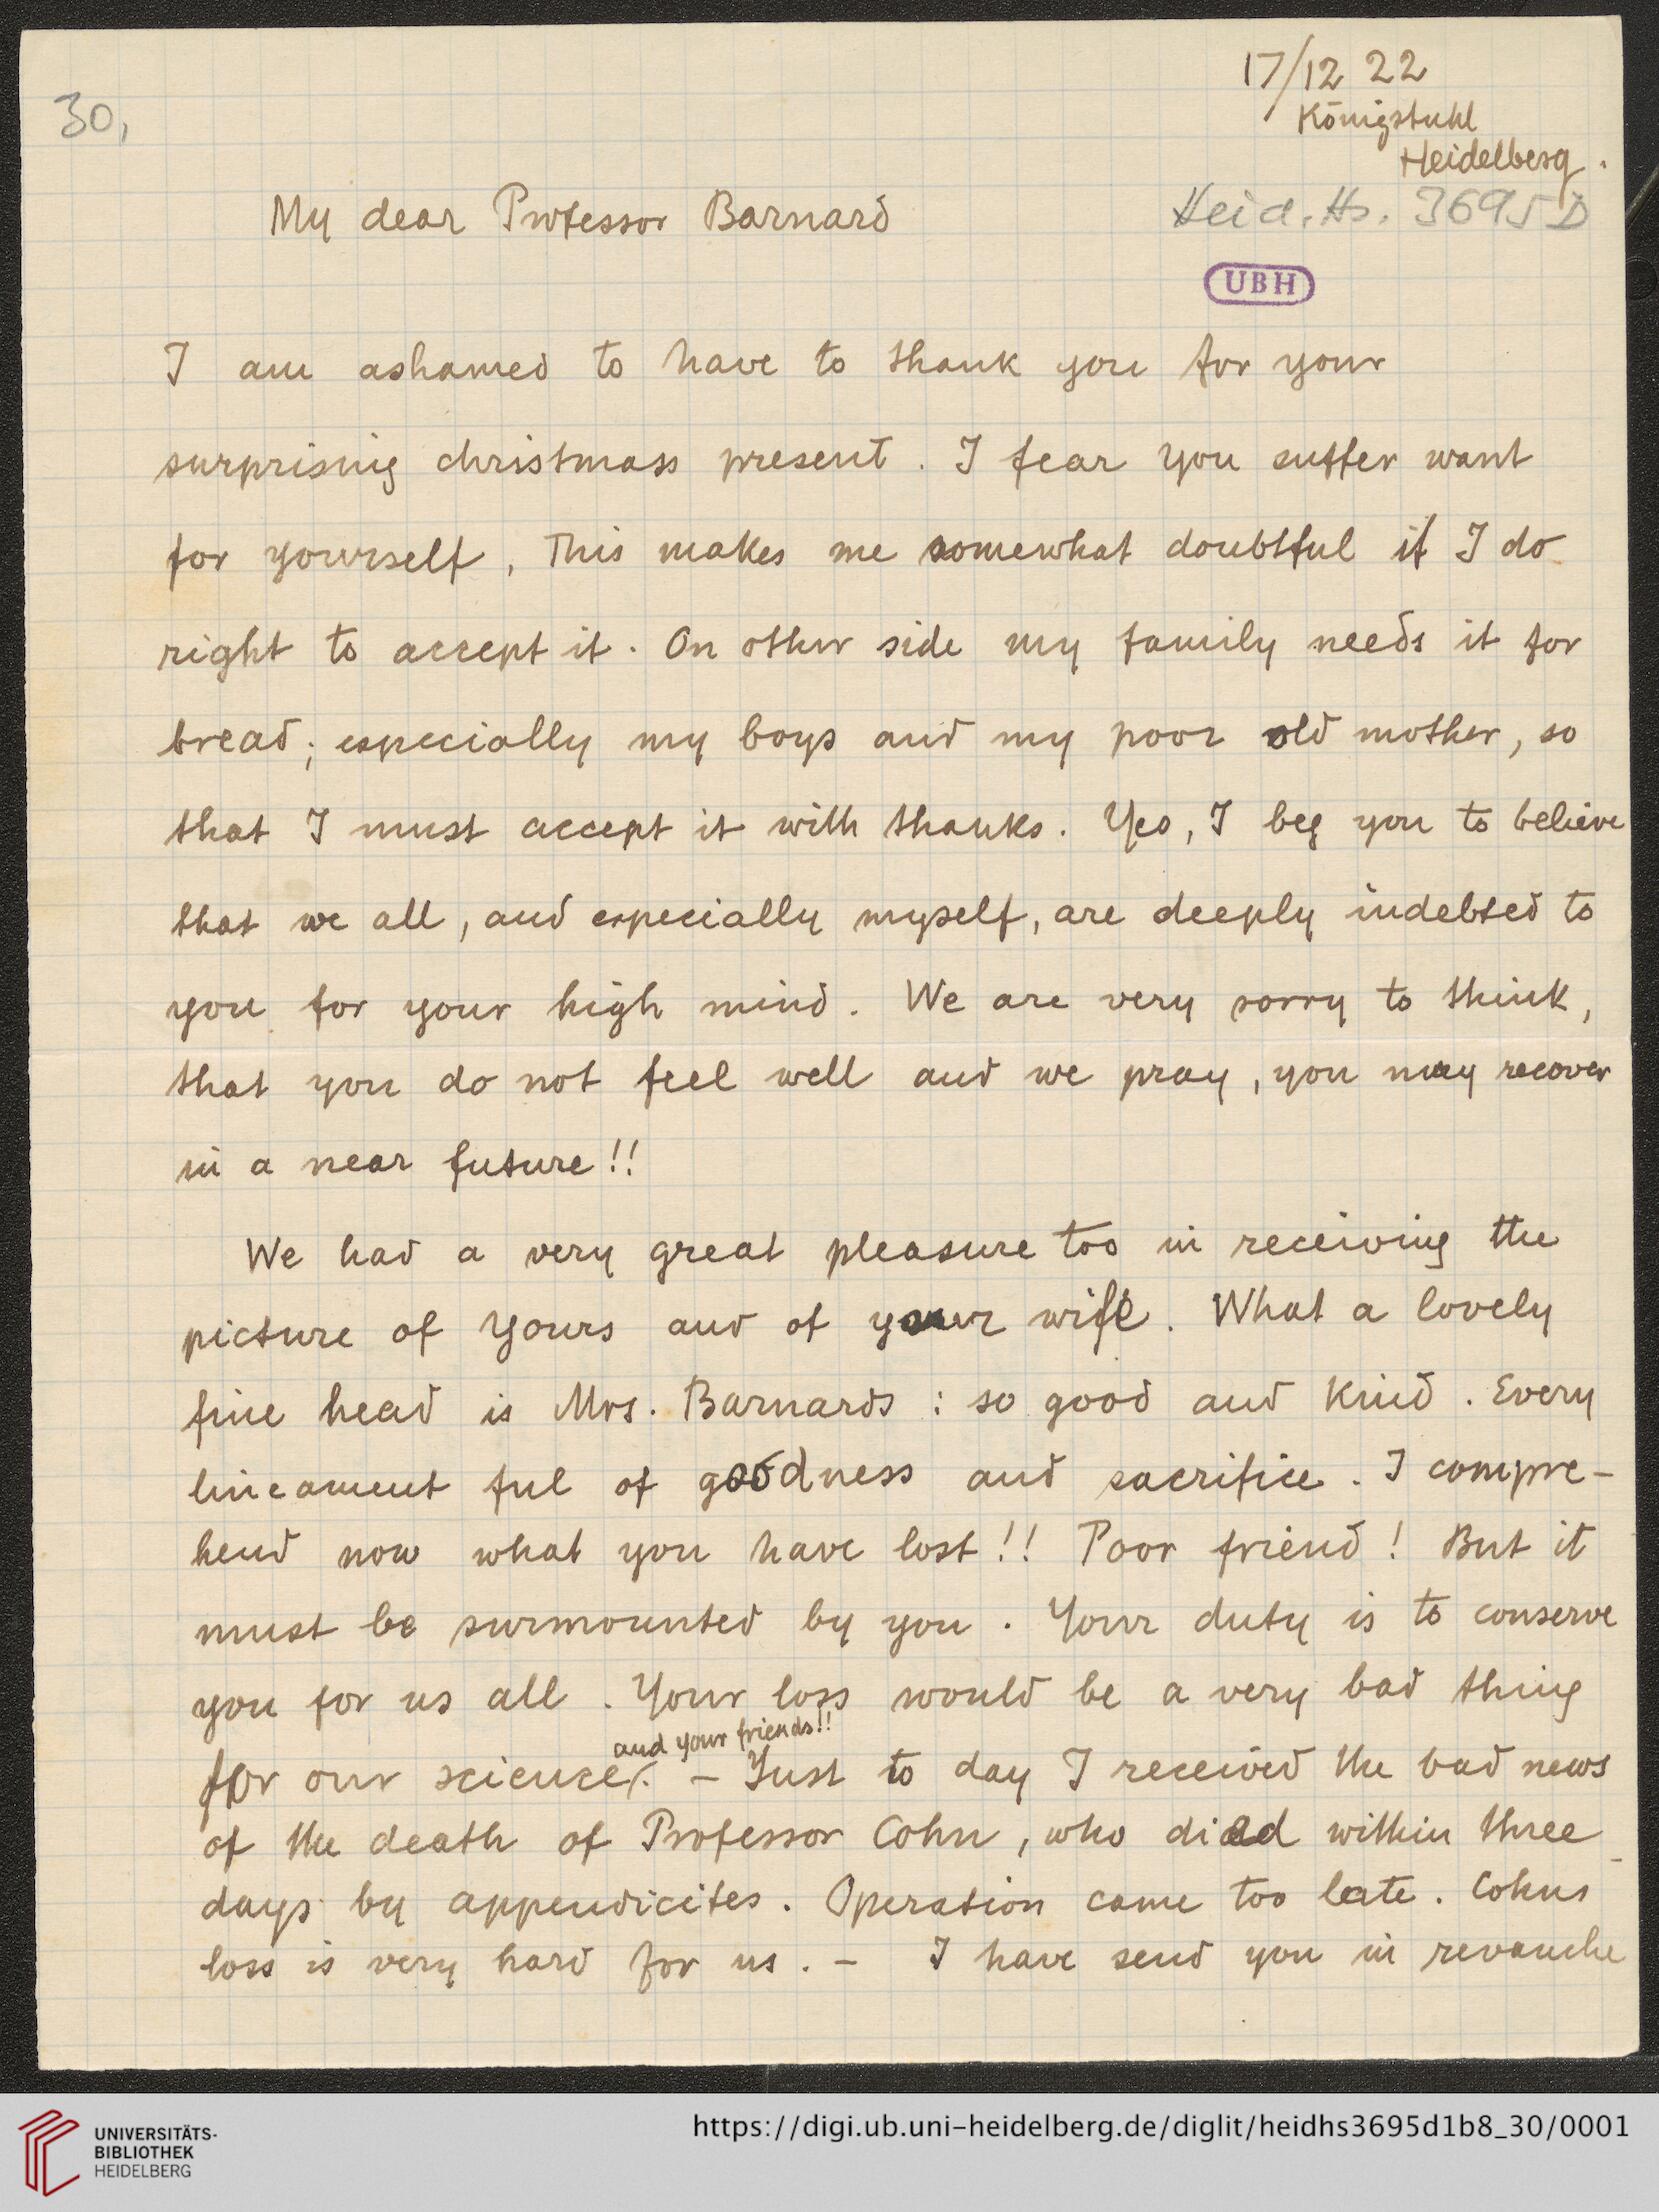 17/12 22
Königstuhl
Heidelberg.
30,
Heid. Hs. 3695 D
My dear Professor Barnard
UBH
I am ashamed to have to thank you for your
surprising christmass present. I fear you suffer want
for yourself, This makes me somewhat doubtful if I do
right to accept it. On other side my family needs it for
bread; especially my boys and my poor old mother, so
that I must accept it with thanks. Yes, I beg you to believe
that we all, and especially myself, are deeply indebted to
you for your high mind. We are very sorry to think,
that you do not feel well and we pray, you may recover
in a near future!!
We had a very great pleasure too in receiving the
picture of Yours and of your wife. What a lovely
fine head is Mrs. Barnards: so good and kind. Every
lineament ful of goodness and sacrifice. I compre-
hend now what you have lost!! Poor friend! But it
must be surmounted by you. Your duty is to conserve
you for us all. Your loss would be a very bad thing
and your friends!!
for our science. – Just to day I received the bad news
of the death of Professor Cohn, who died within three
days by appendicites. Operation came too late. Cohns
loss is very hard for us. – I have send you in revanche
UNIVERSITÄTS-
BIBLIOTHEK
HEIDELBERG
https://digi.ub.uni-heidelberg.de/diglit/heidhs3695d1b8_30/0001